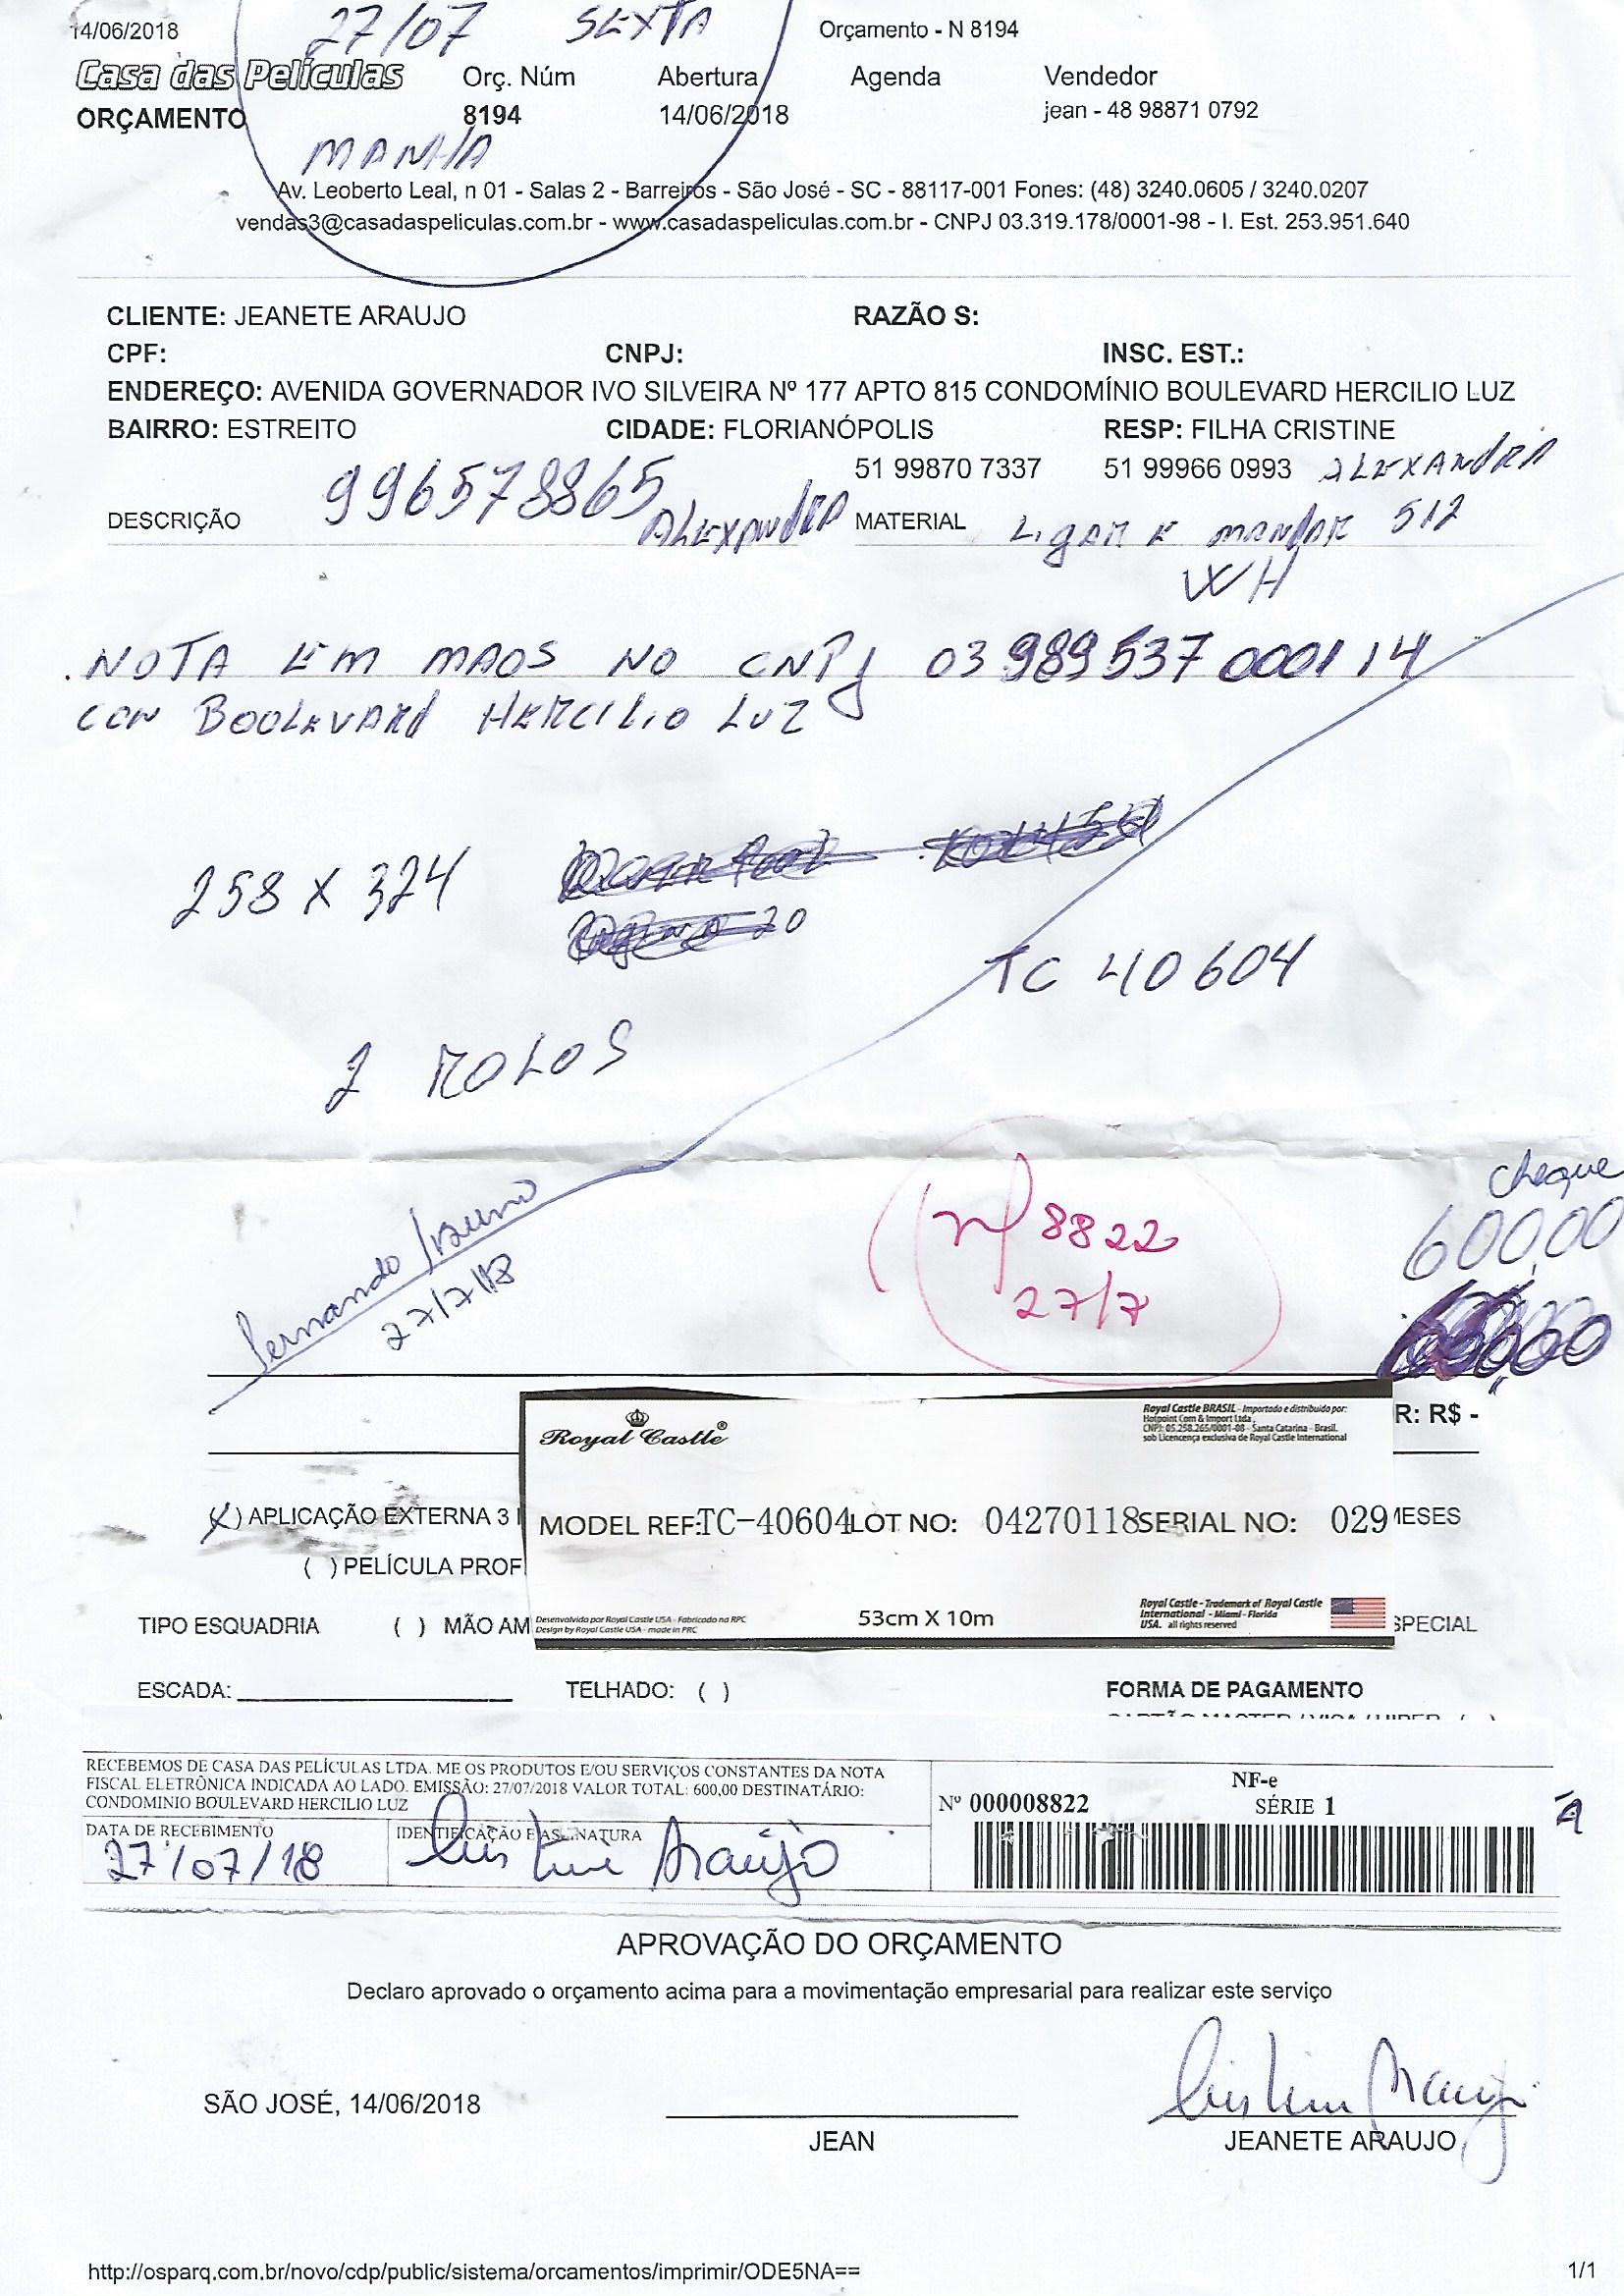 14/06/2018 27/07 SEXTA Orçamento - N 8194
Casa das Películas Orç. Núm Abertura Agenda Vendedor
ORÇAMENTO 8194 14/06/2018 jean - 48 98871 0792
MANHA
Av. Leoberto Leal, n 01 - Salas 2 - Barreiros - São José - SC - 88117-001 Fones: (48) 3240.0605 / 3240.0207
vendas3@casadaspeliculas.com.br - www.casadaspeliculas.com.br - CNPJ 03.319.178/0001-98 - I. Est. 253.951.640
CLIENTE: JEANETE ARAUJO RAZÃO S:
CPF: CNPJ: INSC. EST.:
ENDEREÇO: AVENIDA GOVERNADOR IVO SILVEIRA Nº 177 APTO 815 CONDOMÍNIO BOULEVARD HERCILIO LUZ
BAIRRO: ESTREITO CIDADE: FLORIANÓPOLIS RESP: FILHA CRISTINE
51 99870 7337 51 99966 0993 ALEXANDRA
996578865 ALEXANDRA
DESCRIÇÃO MATERIAL LIGAR E MANDAR 512
WH
NOTA EM MAOS NO CNPJ 03 989 537 0001 14
CON BOULEVARD HERCILIO LUZ
258 X 324
20
TC 40604
2 ROLOS
cheque
600,00
nf 8822
27/7
Fernando
27/7/18
R: R$ -
Royal Castle®
Royal Castle BRASIL - Importado e distribuído por:
Hotpoint Com & Import Ltda.
CNPJ: 05.258.265/0001-08 - Santa Catarina - Brasil.
sob Licencença exclusiva de Royal Castle International
(X) APLICAÇÃO EXTERNA 3 MODEL REF:TC-40604 LOT NO: 04270118 SERIAL NO: 029 MESES
( ) PELÍCULA PROF
TIPO ESQUADRIA ( ) MÃO AM
Desenvolvido por Royal Castle USA - Fabricado na RPC
Design by Royal Castle USA - made in PRC
53cm X 10m
Royal Castle - Trademark of Royal Castle
International - Miami - Florida
USA. all rights reserved
SPECIAL
ESCADA: TELHADO: ( ) FORMA DE PAGAMENTO
CARTÃO MASTER / VISA / HIPER ( )
RECEBEMOS DE CASA DAS PELÍCULAS LTDA. ME OS PRODUTOS E/OU SERVIÇOS CONSTANTES DA NOTA
FISCAL ELETRÔNICA INDICADA AO LADO. EMISSÃO: 27/07/2018 VALOR TOTAL: 600,00 DESTINATÁRIO:
CONDOMINIO BOULEVARD HERCILIO LUZ
NF-e
Nº 000008822 SÉRIE 1
DATA DE RECEBIMENTO IDENTIFICAÇÃO E ASSINATURA
27/07/18 Cristine Araujo
APROVAÇÃO DO ORÇAMENTO
Declaro aprovado o orçamento acima para a movimentação empresarial para realizar este serviço
Cristine Araujo
SÃO JOSÉ, 14/06/2018
JEAN JEANETE ARAUJO
http://osparq.com.br/novo/cdp/public/sistema/orcamentos/imprimir/ODE5NA== 1/1